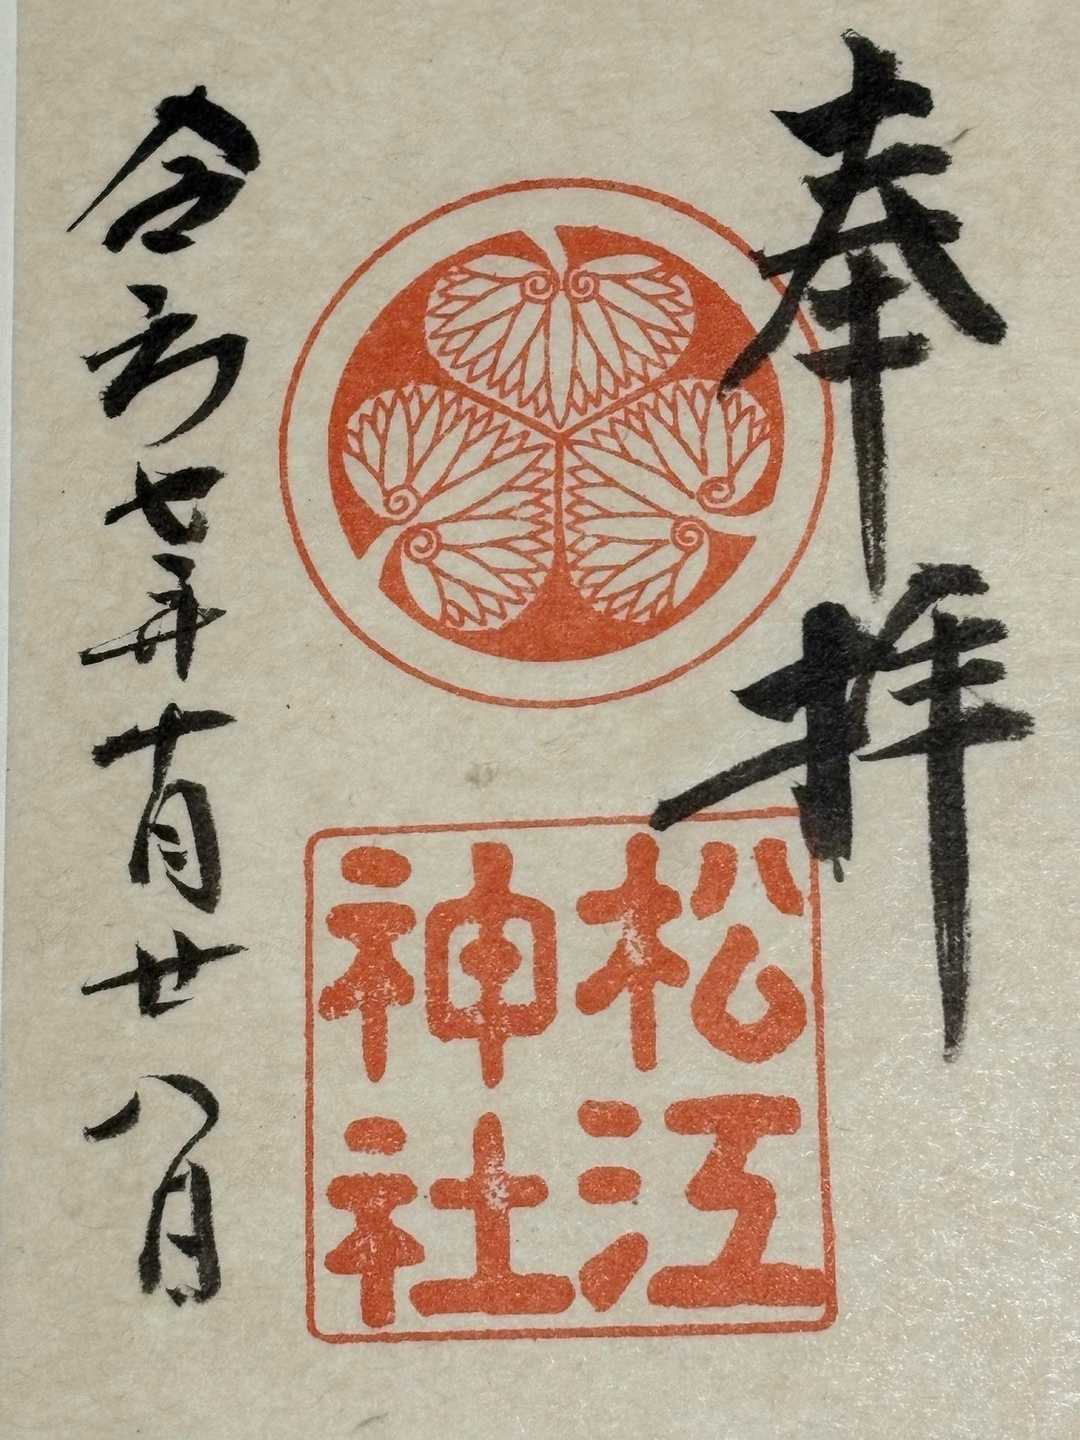 奉拝
松江
神社
令和七年十月廿八日